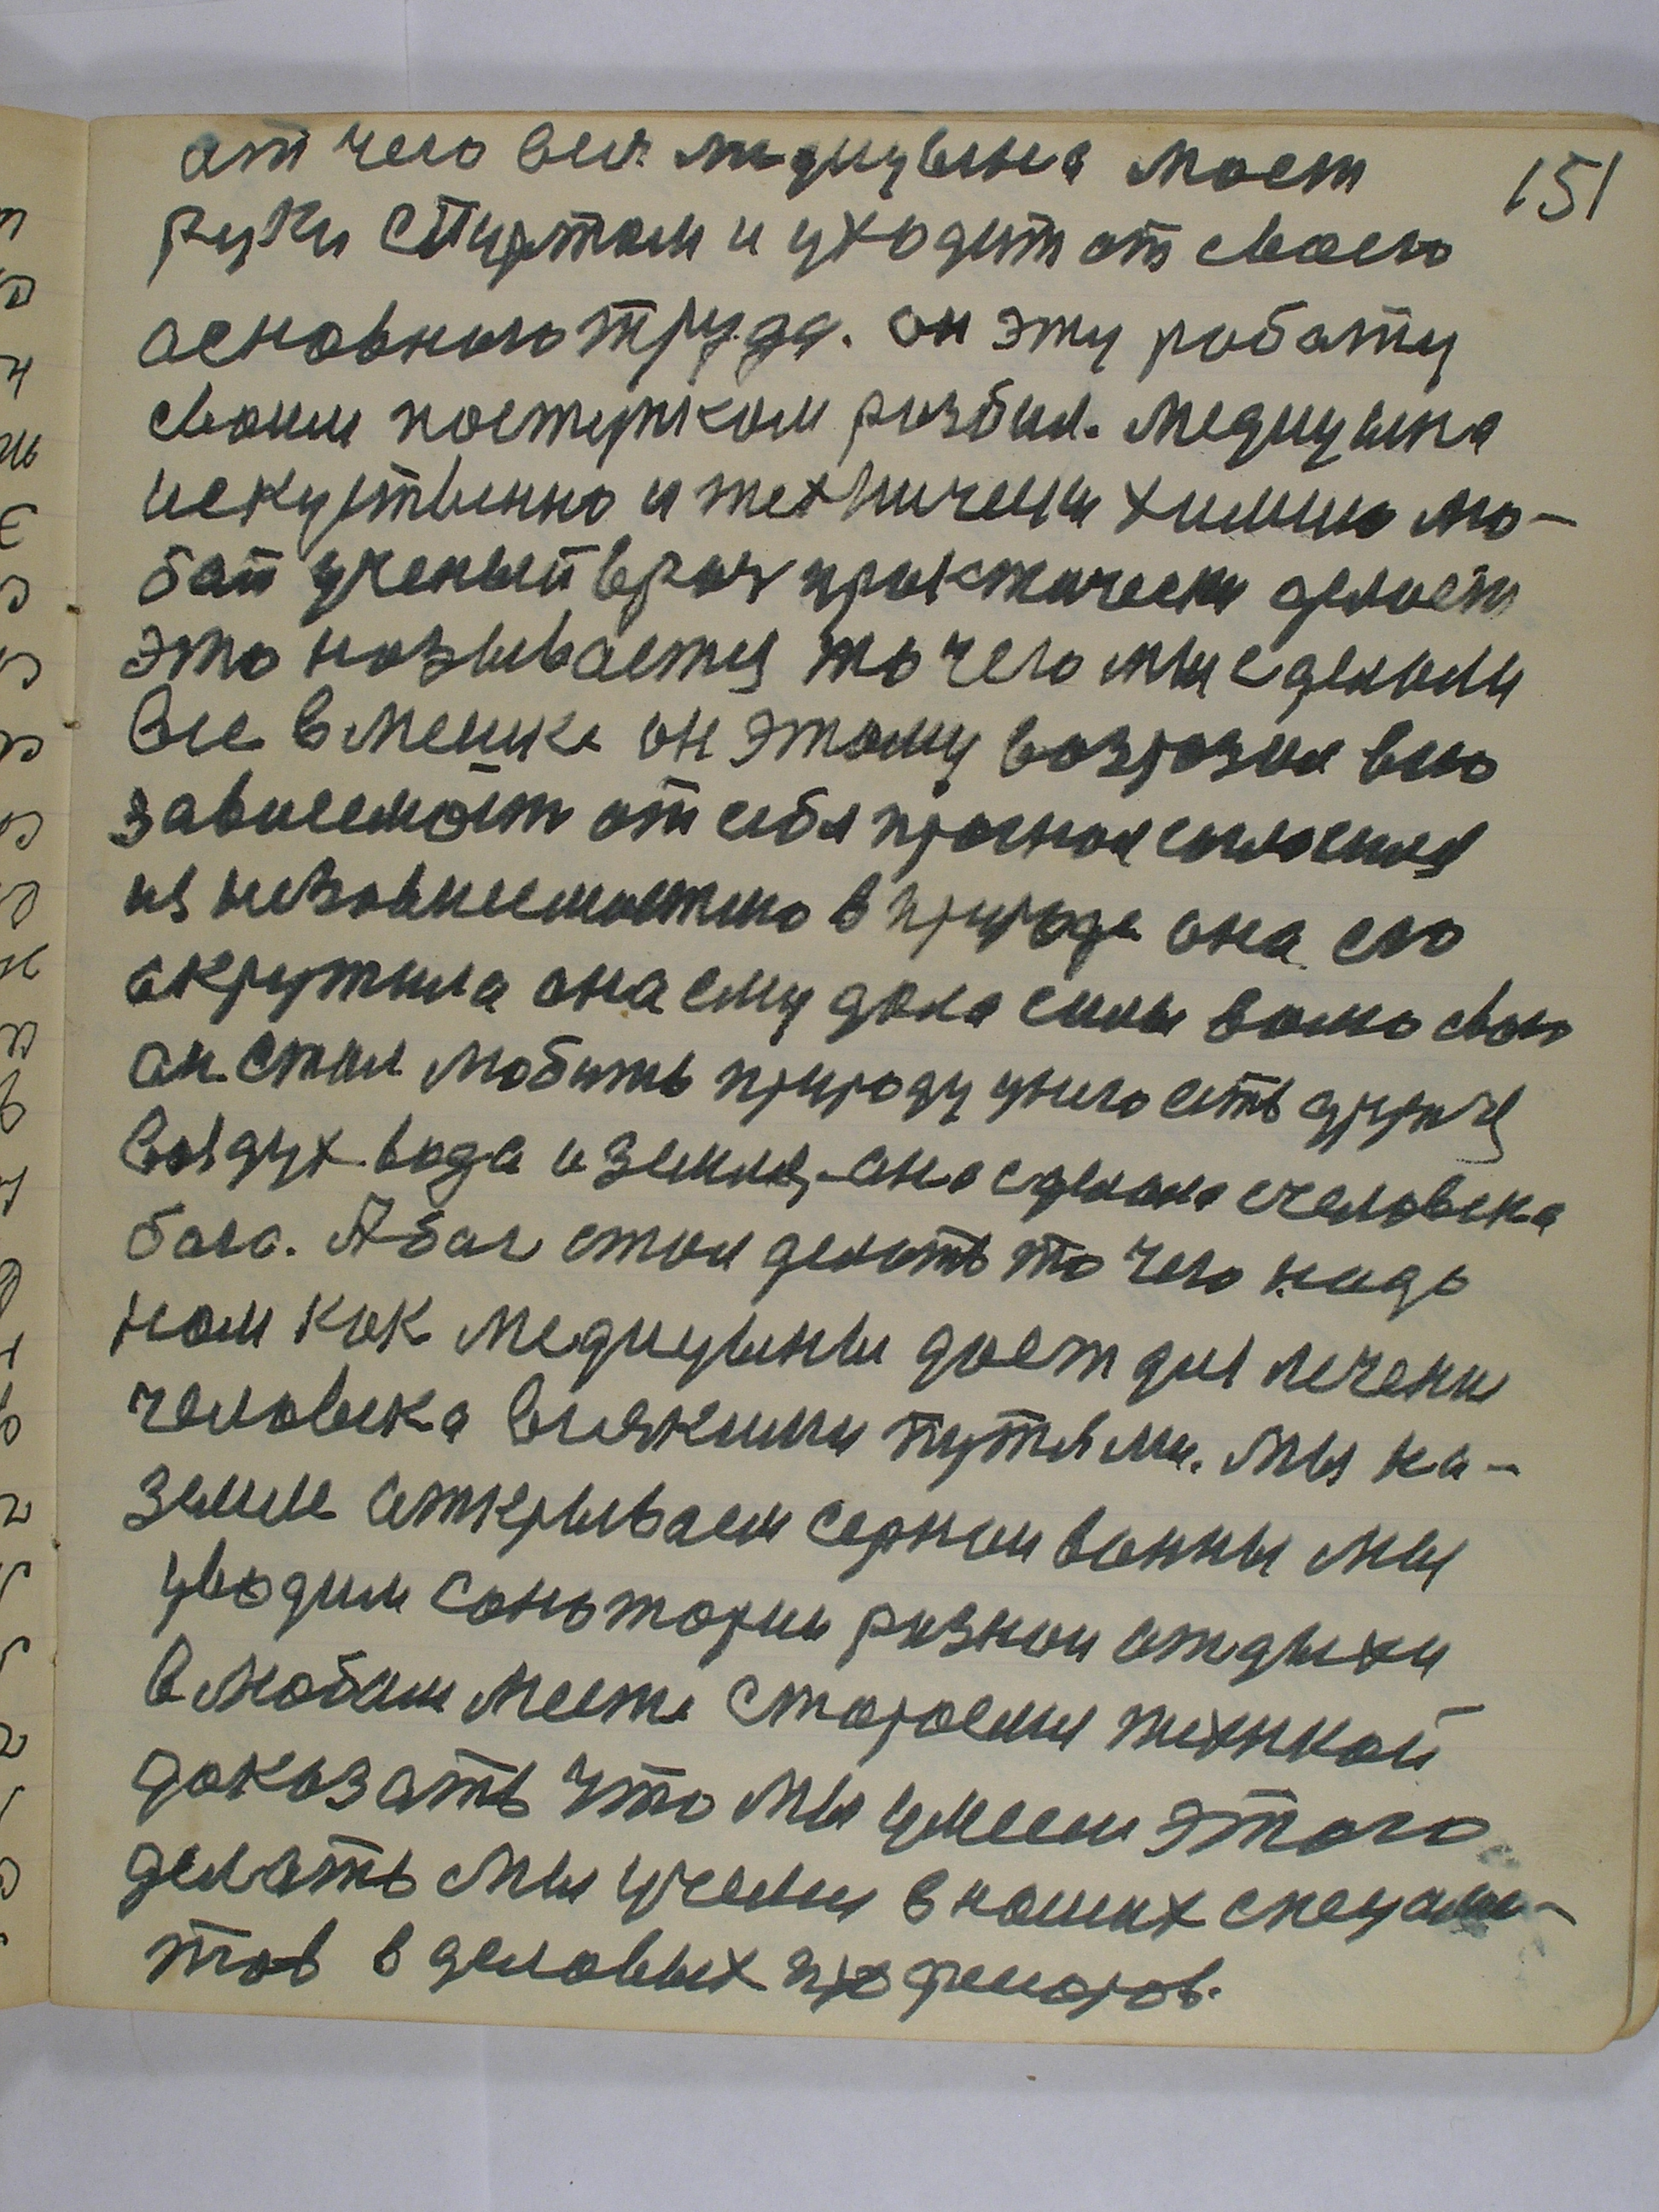 151
ат чего вся медицына моет
руки спиртом и уходит от своего
основного труда. он эту работу
своим поступком розбил. медицина
искуственно и технически химию лю-
бой ученый врач практически делает
это называется то чего мы сделали
все в мешке он этому возрозил всю
зависемость от себя прогнал согласился
из незовисемостию в природе она его
окрутила она ему дала силы волю свою
он стал любить природу унего есть друзья
воздух вода и земля, она сделала счеловека
бога. А бог стал делать то чего надо
нам как медицыны дает для лечени
человека всякими путями. мы на-
земле открываем сернои ванны мы
уводим саноторие рознои отдыхи
в любом месте стораемся технкой
доказать что мы умеем этого
делать мы учемы в наших специали-
тов в деловых профессоров.